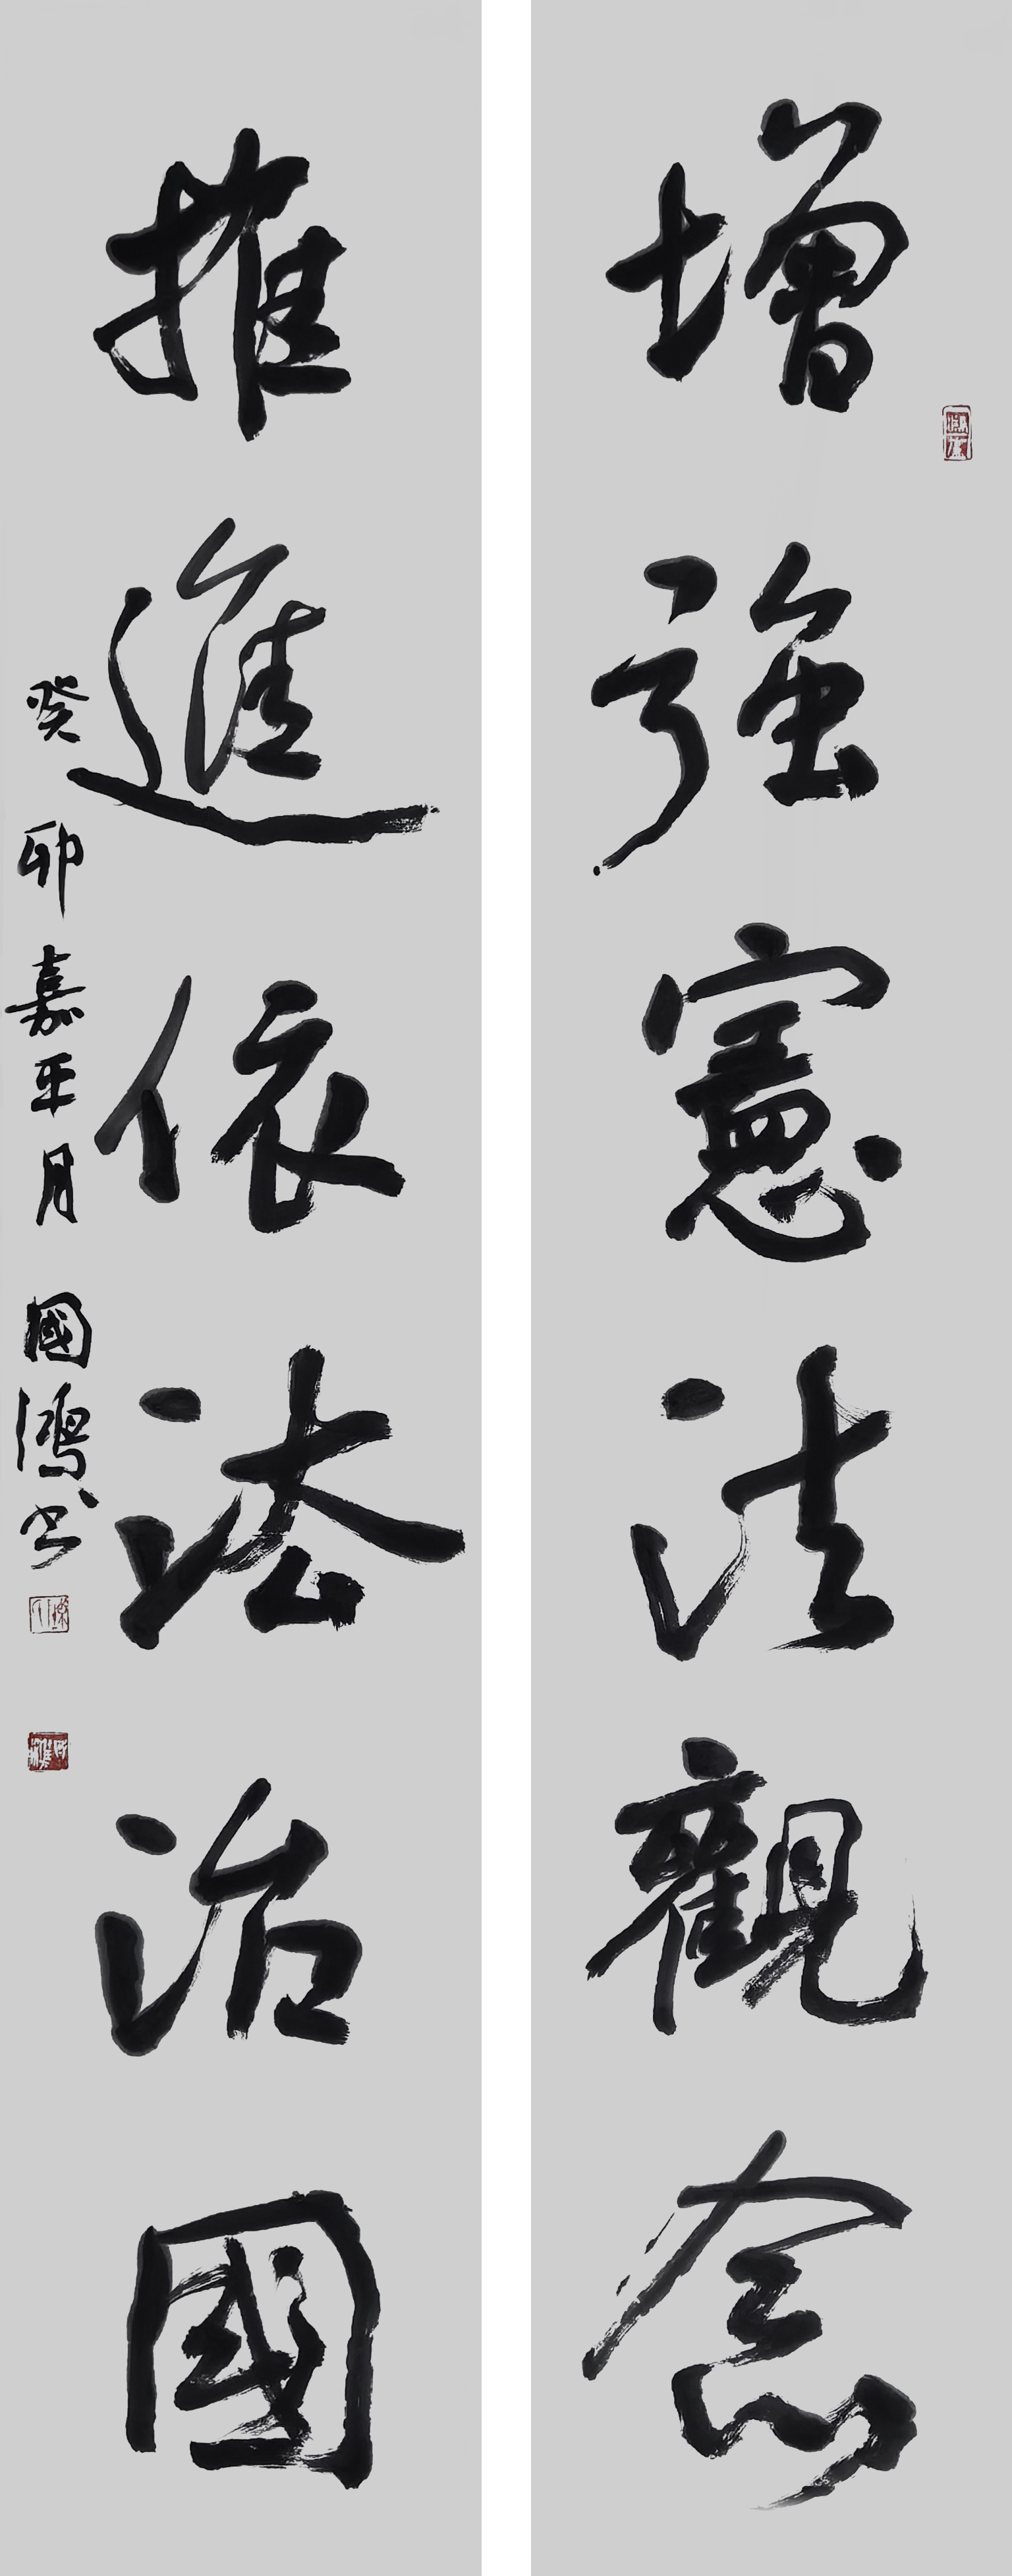 增強憲法觀念
推進依法治國
癸卯嘉平月國鴻书